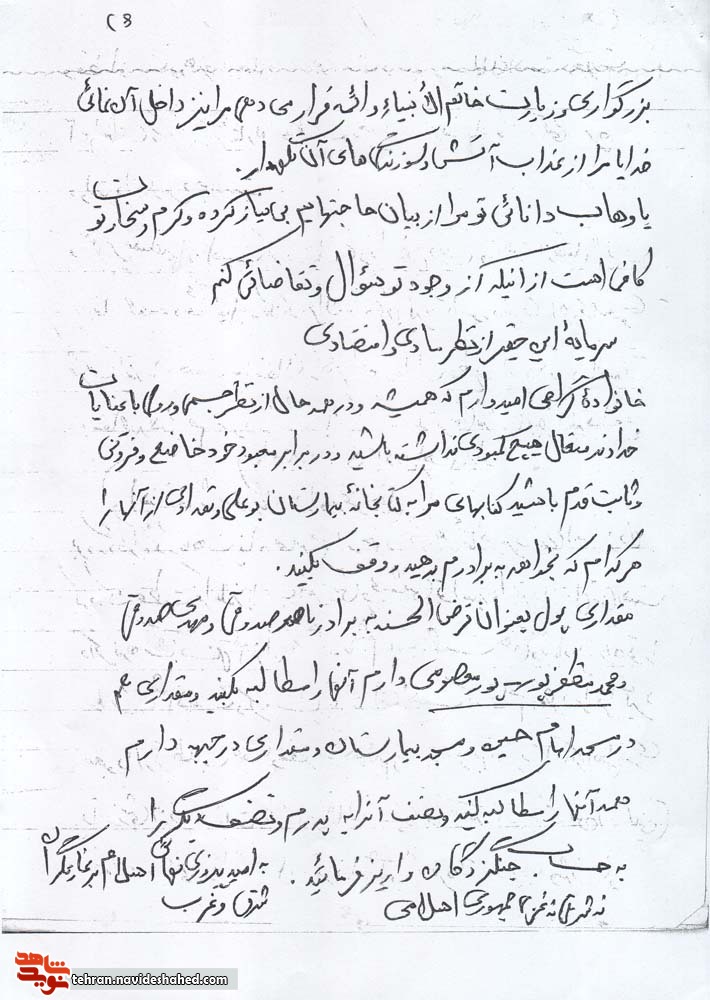 (8
بزرگواری و زیارت خاتم الأنبیاء و ائمه قرار می دهی مرا نیز داخل آن نمائی
خدایا مرا از عذاب آتش و سوزندگی های آن نگهدار.
یا وهاب دانائی تو مرا از بیان حاجتهایم بی نیاز کرده و کرم و سخاوت تو
کافی است از اینکه از وجود تو سئوال و تقاضائی کنم
سرمایهٔ این حقیر از نظر مادی و اقتصادی
خانوادهٔ گرامی امیدوارم که همیشه و در همه حال از نظر جسمی و روحی با عنایات
خداوند متعال هیچ کمبودی نداشته باشید و در برابر معبود خود خاضع و فروتن
و ثابت قدم باشید کتابهای مرا به کتابخانهٔ بیمارستان بوعلی و تعدادی از آنها را
هر کدام که بخواهد به برادرم بدهید و وقف بکنید.
مقداری پول بعنوان قرض الحسنه به برادر ناصر صدوقی و مهدی صدوقی
و محمد مظفر پور معصومی دارم آنها را مطالبه نکنید و مقداری هم
در مسجد امام حسین و مسجد بیمارستان و مقداری در جبهه دارم
همه آنها را مطالبه کنید و نصف آنرا به پدرم و نصف دیگر را
به حساب جنگزدگان واریز فرمائید. به امید پیروزی نهائی اسلام بر تمامی
نه شرقی نه غربی جمهوری اسلامی شرق و غرب
نوید شاهد
tehran.navideshahed.com